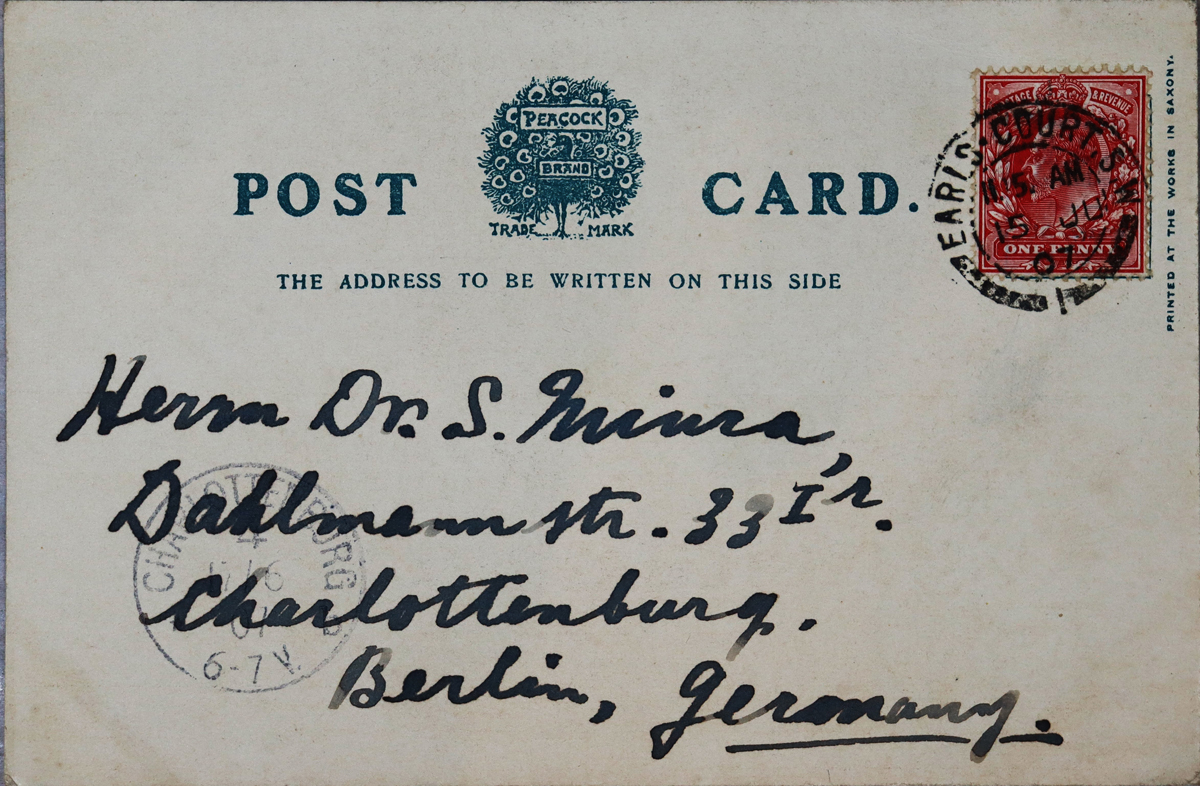 PEACOCK
BRAND
POST CARD.
TRADE MARK
THE ADDRESS TO BE WRITTEN ON THIS SIDE
POSTAGE & REVENUE
ONE PENNY
EARLS COURT. S.W
11.15 AM
15 JU
07
PRINTED AT THE WORKS IN SAXONY.
Herrn Dr. S. Miura,
Dahlmannstr. 33 I'r.
Charlottenburg.
Berlin, Germany.
CHARLOTTENBURG
4
17/6
07
6-7 V.